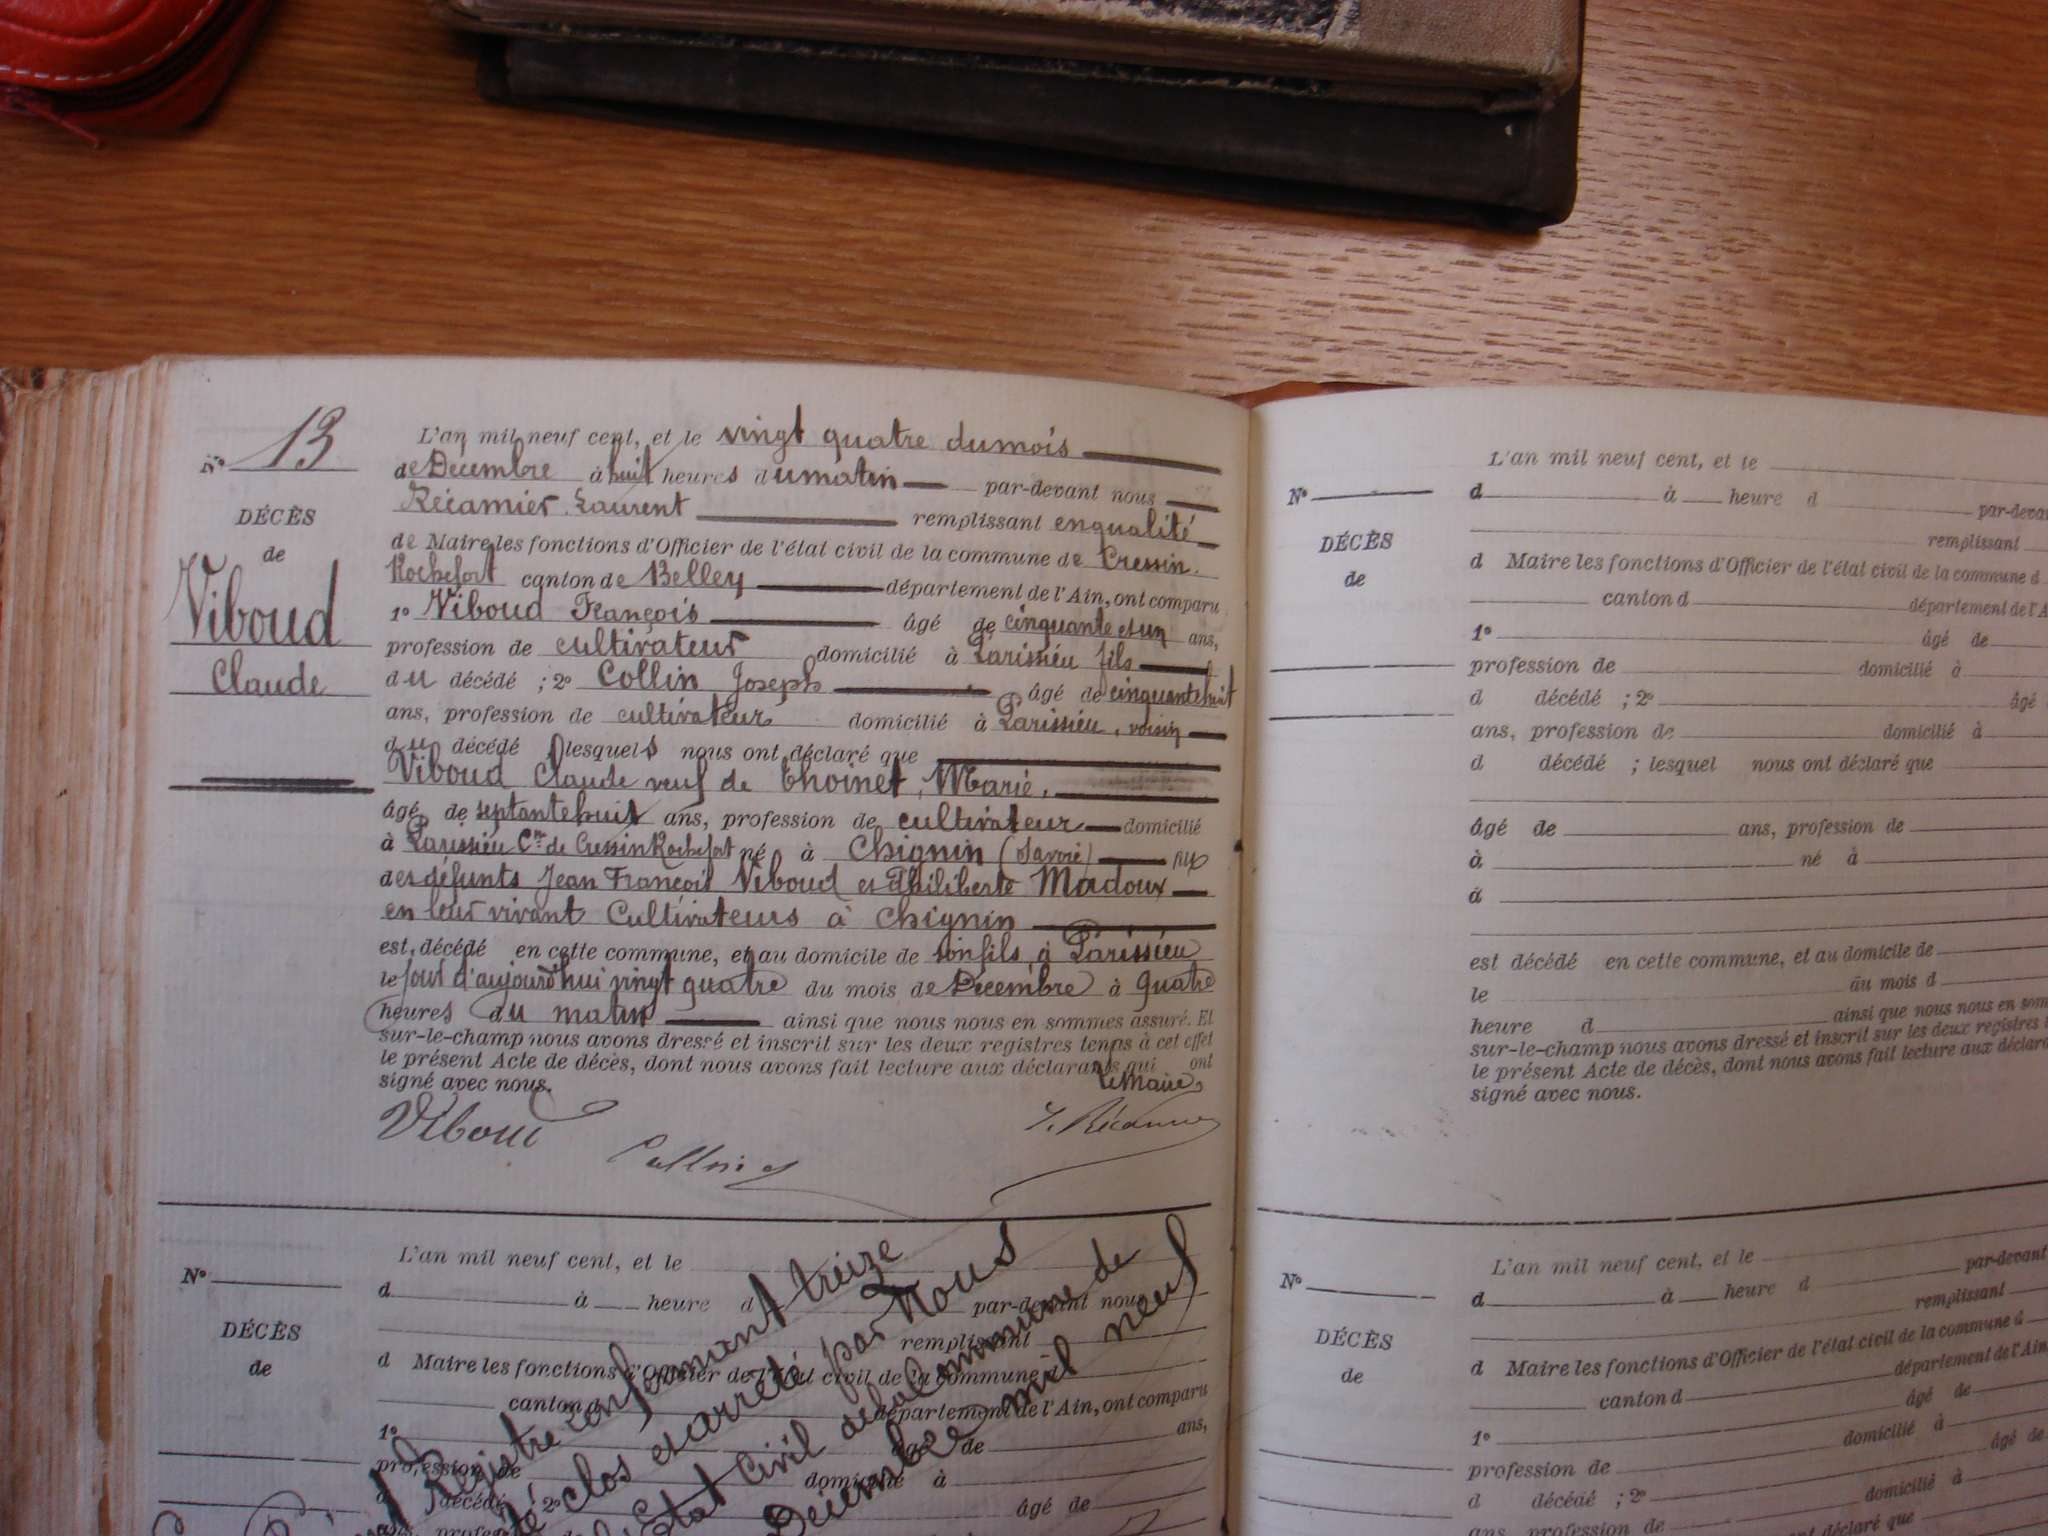 N° 13
DÉCÈS
de
Viboud
Claude
L'an mil neuf cent, et le vingt quatre du mois
de Décembre à huit heures du matin par-devant nous
Récamier Laurent remplissant en qualité
de Maire les fonctions d'Officier de l'état civil de la commune de Cressin
Rochefort canton de Belley département de l'Ain, ont comparu
1° Viboud François âgé de cinquante et un ans,
profession de cultivateur domicilié à Parissieu fils
du décédé ; 2° Collin Joseph âgé de cinquante huit
ans, profession de cultivateur domicilié à Parissieu, voisin
du décédé lesquels nous ont déclaré que
Viboud Claude veuf de Thoinet, Marie,
âgé de septante huit ans, profession de cultivateur domicilié
à Parissieu Cne de Cressin Rochefort né à Chignin (Savoie) fils
des défunts Jean François Viboud et Philiberte Madoux
en leur vivant Cultivateurs à Chignin
est décédé en cette commune, et au domicile de son fils à Parissieu
le jour d'aujourd'hui vingt quatre du mois de Décembre à quatre
heures du matin ainsi que nous nous en sommes assuré. Et
sur-le-champ nous avons dressé et inscrit sur les deux registres tenus à cet effet
le présent Acte de décès, dont nous avons fait lecture aux déclarants qui ont
signé avec nous.
Le Maire
Viboud
Collin
L. Récamier
N°
DÉCÈS
de
L'an mil neuf cent, et le
d à heure d par-devant nous
remplissant
d Maire les fonctions d'Officier de l'état civil de la commune d
canton d département de l'Ain, ont comparu
1° âgé de ans,
profession de domicilié à
d décédé ; 2° âgé de
Registre renfermant treize
clos et arrêté par Nous
État Civil de la Commune de
Décembre mil neuf
N°
DÉCÈS
de
L'an mil neuf cent, et le
d à heure d par-devant
remplissant
d Maire les fonctions d'Officier de l'état civil de la commune d
canton d département de l'A
1° âgé de
profession de domicilié à
d décédé ; 2° âgé
ans, profession de domicilié à
d décédé ; lesquel nous ont déclaré que
âgé de ans, profession de
à né à
à
est décédé en cette commune, et au domicile de
le au mois d
heure d ainsi que nous nous en som
sur-le-champ nous avons dressé et inscrit sur les deux registres
le présent Acte de décès, dont nous avons fait lecture aux déclara
signé avec nous.
N°
DÉCÈS
de
L'an mil neuf cent, et le
d à heure d par-devant
remplissant
d Maire les fonctions d'Officier de l'état civil de la commune d
canton d département de l'Ain
1° âgé de
profession de domicilié à
d décédé ; 2° âgé de
ans, profession de domicilié à
ont déclaré que